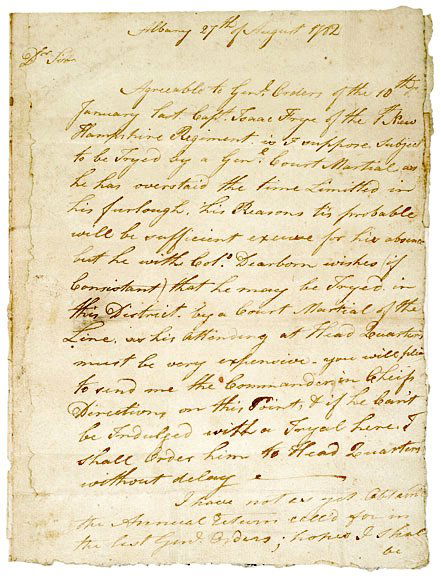 Albany 27th of August 1782
Dr Sir
Agreeable to Genl. Orders of the 10th
January last Capt. Isaac Frye of the 1st New
Hampshire Regiment is I suppose Subject
to be Tryed by a Genl. Court Martial as
he has overstaid the time Limitted in
his furlough, his Reasons tis probable
will be sufficient excuse for his absence
but he with Colo. Dearborn wishes (if
Consistant) that he may be Tryed in
this District by a Court Martial of the
Line, as his attending at Head Quarters
must be very expensive. you will please
to send me the Commander in Chiefs
Directions on this Point, & if he Can't
be Indulged with a Tryal here I
shall Order him to Head Quarters
without delay
I have not as yet Obtain
the Annual Return called for in
the last Genl. Orders; hopes I shall
be